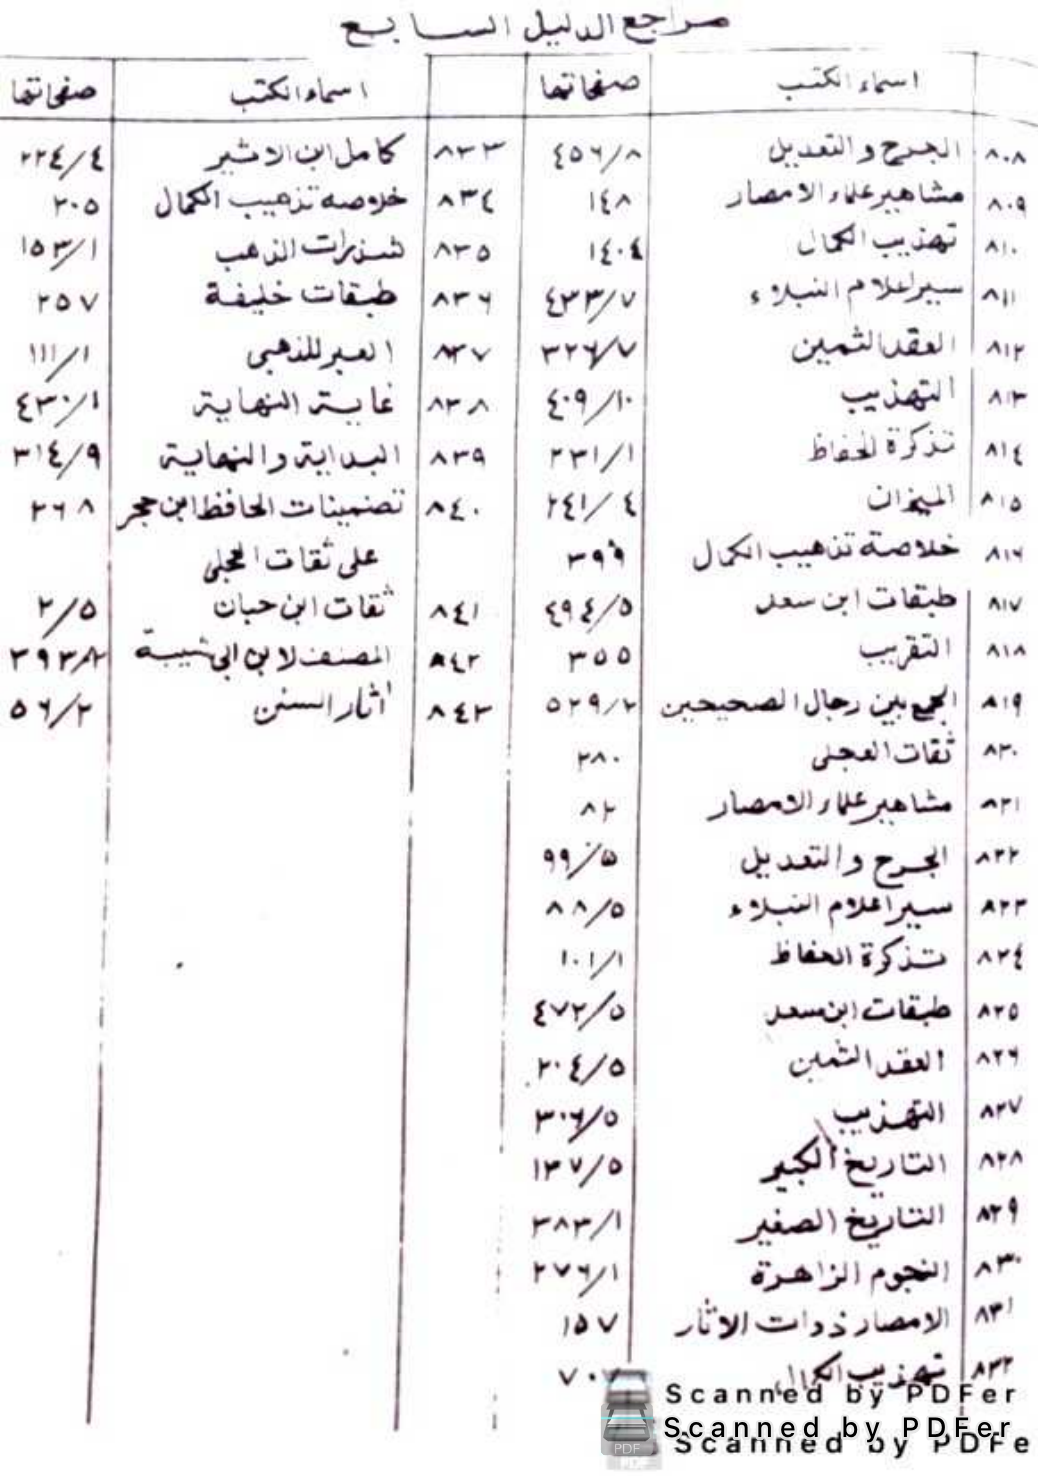 مراجع الدليل السابع
اسماء الكتب صفحاتها
٨٠٨ الجرح والتعديل ٤٥٦/٨
٨٠٩ مشاهير علماء الامصار ١٤٨
٨١٠ تهذيب الكمال ١٤٠٤
٨١١ سير اعلام النبلاء ٤٣٣/٧
٨١٢ العقد الثمين ٣٢٦/٧
٨١٣ التهذيب ٤٠٩/١٠
٨١٤ تذكرة الحفاظ ٢٣١/١
٨١٥ الميزان ٢٤١/٤
٨١٦ خلاصة تذهيب الكمال ٣٩٩
٨١٧ طبقات ابن سعد ٤٩٤/٥
٨١٨ التقريب ٣٥٥
٨١٩ الجمع بين رجال الصحيحين ٥٢٩/٢
٨٢٠ ثقات العجلى ٢٨٠
٨٢١ مشاهير علماء الامصار ٨٢
٨٢٢ الجرح والتعديل ٩٩/٥
٨٢٣ سير اعلام النبلاء ٨٨/٥
٨٢٤ تذكرة الحفاظ ١٠١/١
٨٢٥ طبقات ابن سعد ٤٧٢/٥
٨٢٦ العقد الثمين ٢٠٤/٥
٨٢٧ التهذيب ٣٠٦/٥
٨٢٨ التاريخ الكبير ١٣٧/٥
٨٢٩ التاريخ الصغير ٣٨٣/١
٨٣٠ النجوم الزاهرة ٢٧٦/١
٨٣١ الامصار ذوات الاثار ١٥٧
٨٣٢ تهذيب الكمال ٧٠٧
اسماء الكتب صفحاتها
٨٣٣ كامل ابن الاثير ٢٢٤/٤
٨٣٤ خلاصه تذهيب الكمال ٢٠٥
٨٣٥ شذرات الذهب ١٥٣/١
٨٣٦ طبقات خليفة ٢٥٧
٨٣٧ العبر للذهبى ١١١/١
٨٣٨ غاية النهاية ٤٣٠/١
٨٣٩ البداية والنهاية ٣١٤/٩
٨٤٠ تضمينات الحافظ ابن حجر ٢٦٨
على ثقات العجلى
٨٤١ ثقات ابن حبان ٢/٥
٨٤٢ المصنف لابن ابى شيبة
٨٤٣ اثار السنن ٥٦/٢
Scanned by PDFer
Scanned by PDFer
Scanned by PDFe